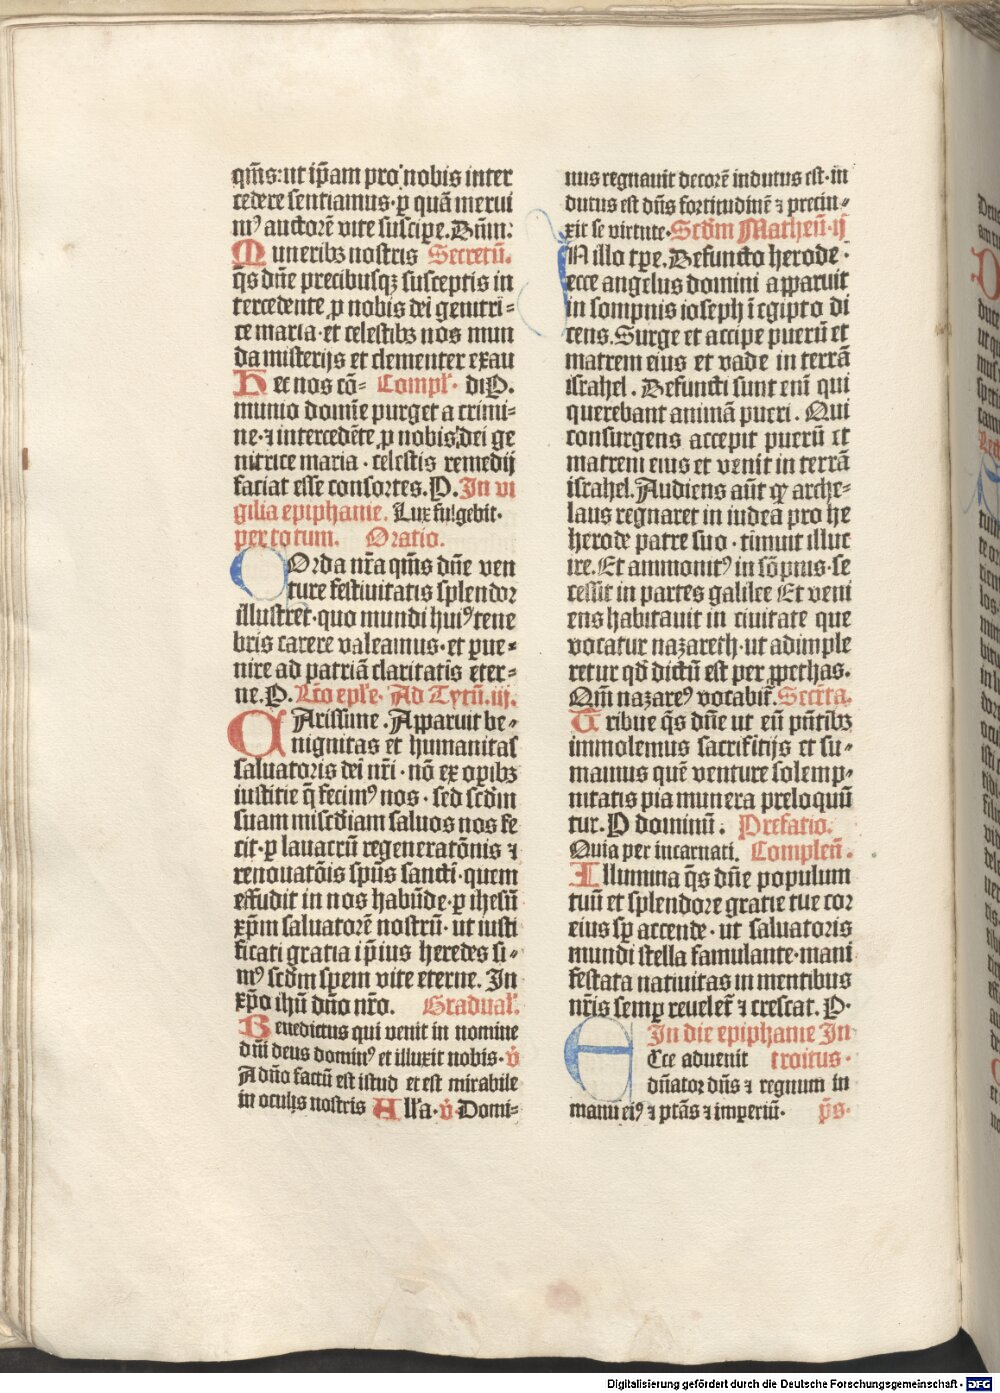 qm̄s:ut ip̄am pro nobis inter
cedere sentiamus·ꝑ quā merui
mꝰ auctorē vite suscipe.Dūm:
Muneribꝫ nostris Secretū.
q̄s dn̄e precibusqꝫ susceptis in
tercedente ꝓ nobis dei genitri⸗
ce maria·et celestibꝫ nos mun
da misterijs et clementer exau
Hec nos cō⸗ Compl̄· di P.
munio domīe purget a crimi⸗
ne·⁊ intercedēte ꝓ nobis dei ge
nitrice maria·celestis remedij
faciat esse consortes.P. In vi
gilia epiphanie. Lux fulgebit·
per totum. Oratio.
COrda nr̄a qm̄s dn̄e ven
ture festiuitatis splendor
illustret·quo mundi huiꝰ tene
bris carere valeamus·et ꝑue⸗
nire ad patriā claritatis eter⸗
ne.P. Lc̄o epl̄e· Ad Tytū.iij.
CArissime.Apparuit be⸗
nignitas et humanitas
saluatoris dei nr̄i·nō ex oꝑibꝫ
iusticie q̄ fecimꝰ nos·sed scd̄m
suam misc̄diam saluos nos fe
cit·ꝑ lauacrū regeneratōnis ⁊
renouatōis spūs sancti·quem
effudit in nos habūde·ꝑ ihesū
xp̄m saluatorē nostrū·ut iusti
ficati gratia ip̄ius heredes si⸗
mꝰ scd̄m spem vite eterne. In
xp̄o ihū dn̄o nr̄o. Gradual̄.
Benedictus qui venit in nomine
dn̄i deus dominꝰ et illuxit nobis·v̄
A dn̄o factū est istud et est mirabile
in oculis nostris All'a·v̄·Domi⸗
nus regnauit decorē indutus est·in
dutus est dn̄s fortitudinē ⁊ precin⸗
xit se virtute· Scd̄m Matheū·ij
IN illo tp̄e.Defuncto herode·
ecce angelus domini apparuit
in sompnis ioseph ī egipto di
cens.Surge et accipe puerū et
matrem eius et vade in terrā
israhel.Defuncti sunt enī qui
querebant animā pueri.Qui
consurgens accepit puerū et
matrem eius et venit in terrā
israhel.Audiens aūt qꝫ arche⸗
laus regnaret in iudea pro he
herode patre suo·timuit illuc
ire.Et ammonitꝰ in sōpnis·se
cessit in partes galilee Et veni
ens habitauit in ciuitate que
vocatur nazareth·ut adimple
retur qd̄ dictū est per ꝓphetas.
Qm̄ nazareꝰ vocabit̄. Secr̄ta.
Tribue q̄s dn̄e ut eū pn̄tibꝫ
immolemus sacrificijs et su⸗
mamus quē venture solemp⸗
nitatis pia munera preloquū
tur.P dominū. Prefatio.
Quia per incarnati. Complen̄.
Illumina q̄s dn̄e populum
tuū et splendore gratie tue cor
eius sꝑ accende·ut saluatoris
mundi stella famulante·mani
festata natiuitas in mentibus
nr̄is semꝑ reuelet̄ ⁊ crescat.P·
In die epiphanie In
ECce aduenit troitus·
dn̄ator dn̄s ⁊ regnum in
manu eiꝰ ⁊ ptās ⁊ imperiū· p̄s·
Digitalisierung gefördert durch die Deutsche Forschungsgemeinschaft - DFG